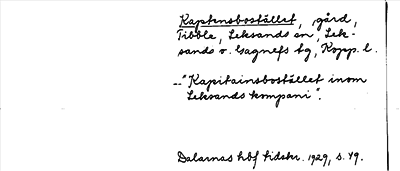 Kaptensbostället, gård,
Tibble, Leksands sn, Lek-
sands o. Gagnefs tg, Kopp. l.
.."Kapitainsbostället inom
Leksands kompani".
Dalarnas hbf tidskr. 1929, s. 49.